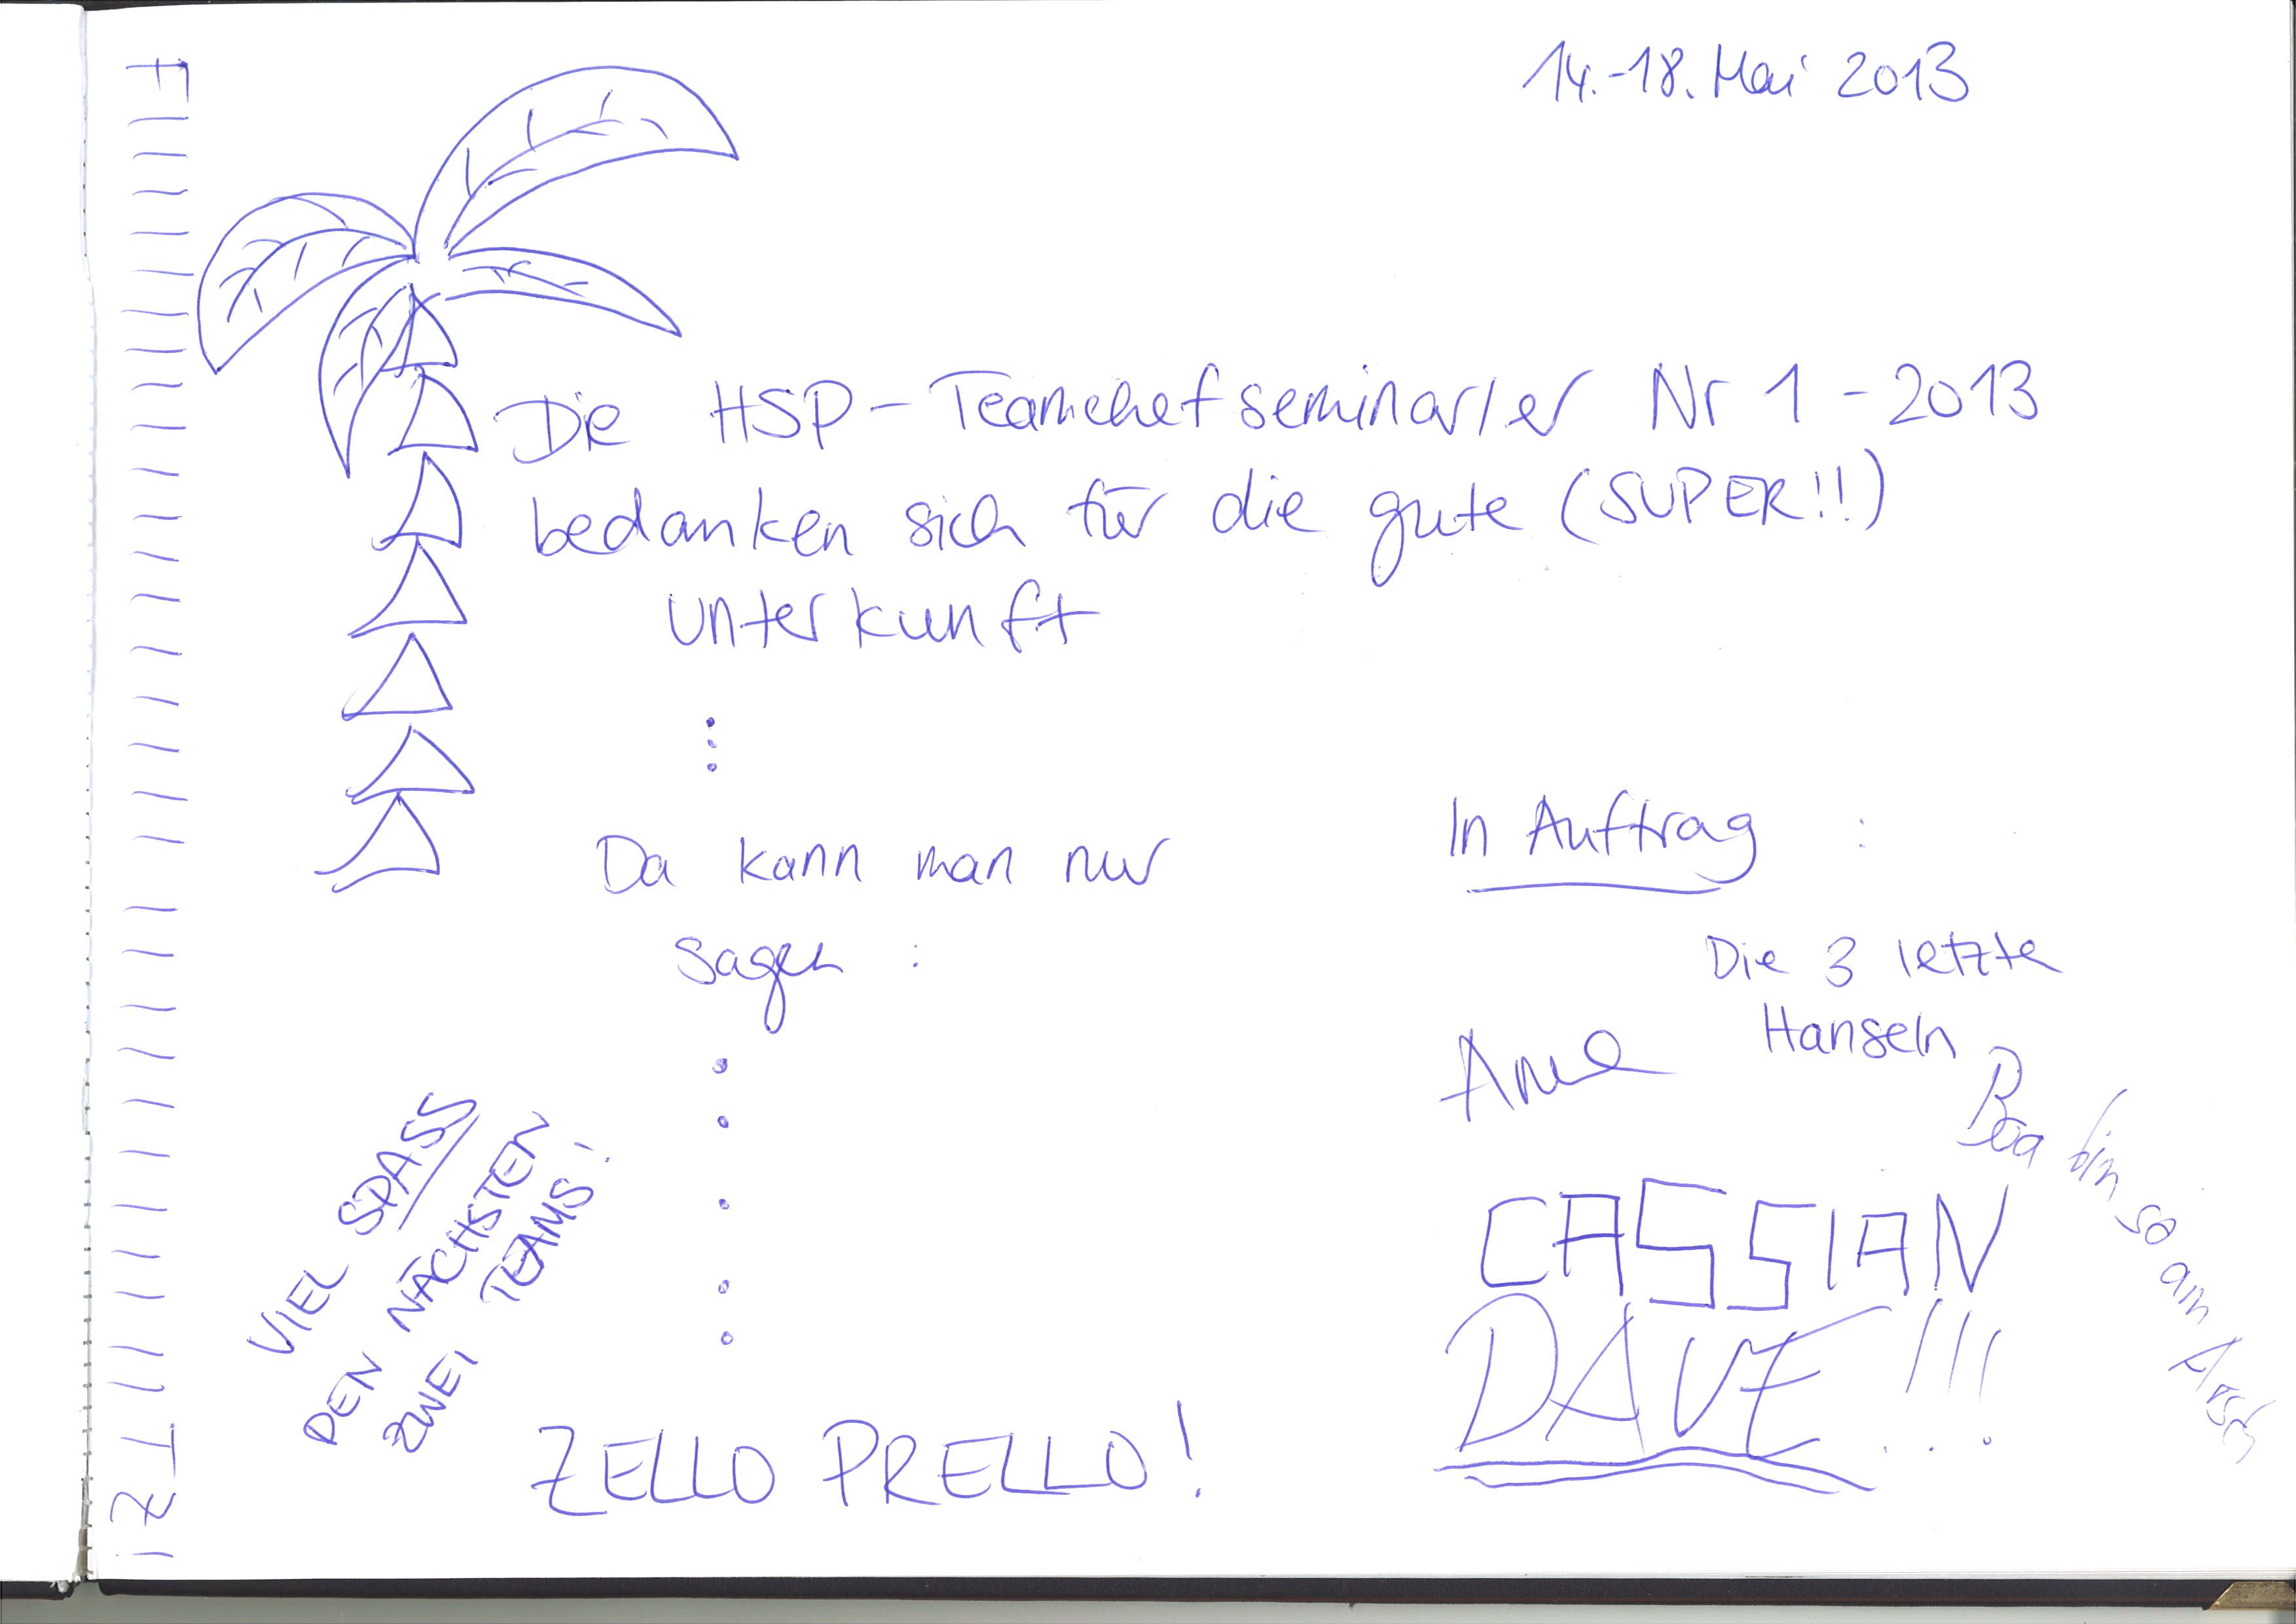 14.-18. Mai 2013
Die HSP-Teamchefseminarler Nr 1 - 2013
bedanken sich für die gute (SUPER!!)
Unterkunft
⋮
Da kann man nur
sagen :
ZELLO PRELLO!
VIEL SPASS
DEN NÄCHSTEN
ZWEI TEAMS!
In Auftrag :
Die 3 letzte
Hanseln
Bea bin so am Arsch
CASSIAN
DAVE!!!